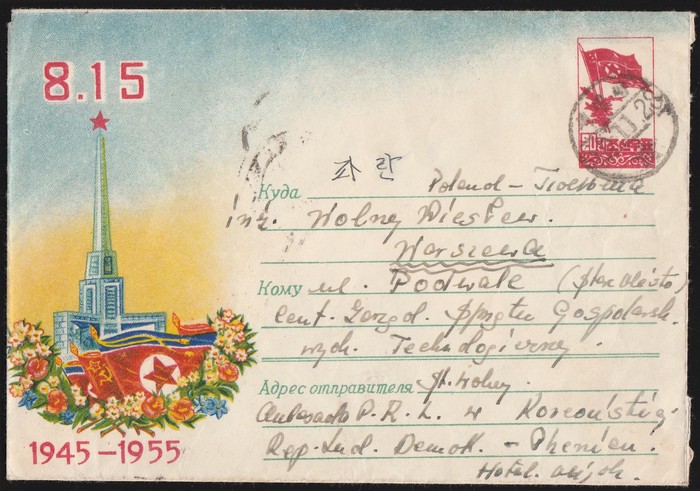 8.15
파란
Куда Poland -
inż. Wolny Wiesław.
Warszawa
Кому ul. Podwale (Stare Miasto)
Cent. Zarząd. Sprzętu Gospodarsk.
wydz. Technologiczny.
Адрес отправителя St. Wolny.
Ambasada P. R. L. w Koreańskiej
Rep. Lud. Demok. - Phenian.
Hotel.
1945-1955